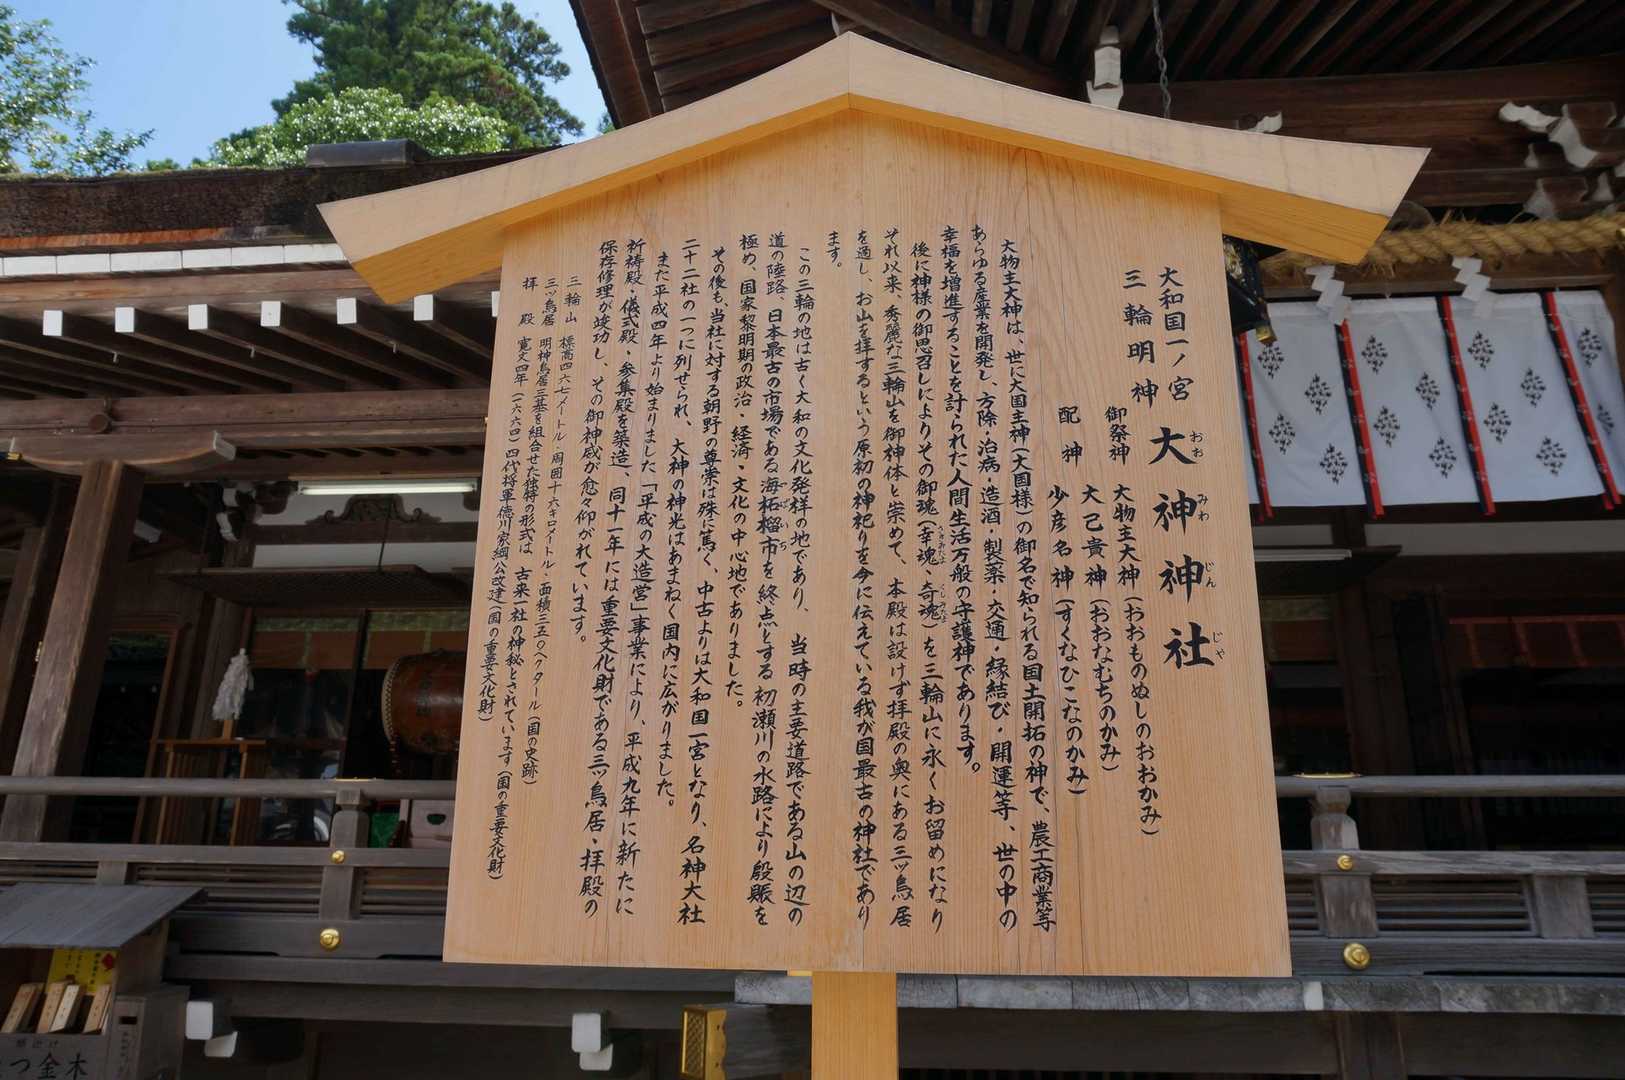 大和国一ノ宮
三輪明神
大神神社
おお みわ じん じゃ
御祭神 大物主大神(おおものぬしのおおかみ)
大己貴神(おおなむちのかみ)
配神 少彦名神(すくなひこなのかみ)
大物主大神は、世に大国主神(大国様)の御名で知られる国土開拓の神で、農工商業等
あらゆる産業を開発し、方除・治病・造酒・製薬・交通・縁結び・開運等、世の中の
幸福を増進することを計られた人間生活万般の守護神であります。
後に神様の御思召しによりその御魂(幸魂、奇魂)を三輪山に永くお留めになり
さきみたま くしみたま
それ以来、秀麗な三輪山を御神体と崇めて、本殿は設けず拝殿の奥にある三ッ鳥居
を通し、お山を拝するという原初の神祀りを今に伝えている我が国最古の神社であり
ます。
この三輪の地は古く大和の文化発祥の地であり、当時の主要道路である山の辺の
道の陸路、日本最古の市場である海柘榴市を終点とする初瀬川の水路により殷賑を
つばいち
極め、国家黎明期の政治・経済・文化の中心地でありました。
その後も、当社に対する朝野の尊崇は殊に篤く、中古よりは大和国一宮となり、名神大社
二十二社の一つに列せられ、大神の神光はあまねく国内に広がりました。
また平成四年より始まりました「平成の大造営」事業により、平成九年に新たに
祈祷殿・儀式殿・参集殿を築造、同十一年には重要文化財である三ッ鳥居・拝殿の
保存修理が竣功し、その御神威が愈々仰がれています。
三輪山 標高四六七メートル・周囲十六キロメートル・面積三五〇ヘクタール(国の史跡)
三ッ鳥居 明神鳥居三基を組合せた独特の形式は、古来一社の神秘とされています(国の重要文化財)
拝殿 寛文四年(一六六四)四代将軍徳川家綱公改建(国の重要文化財)
金木